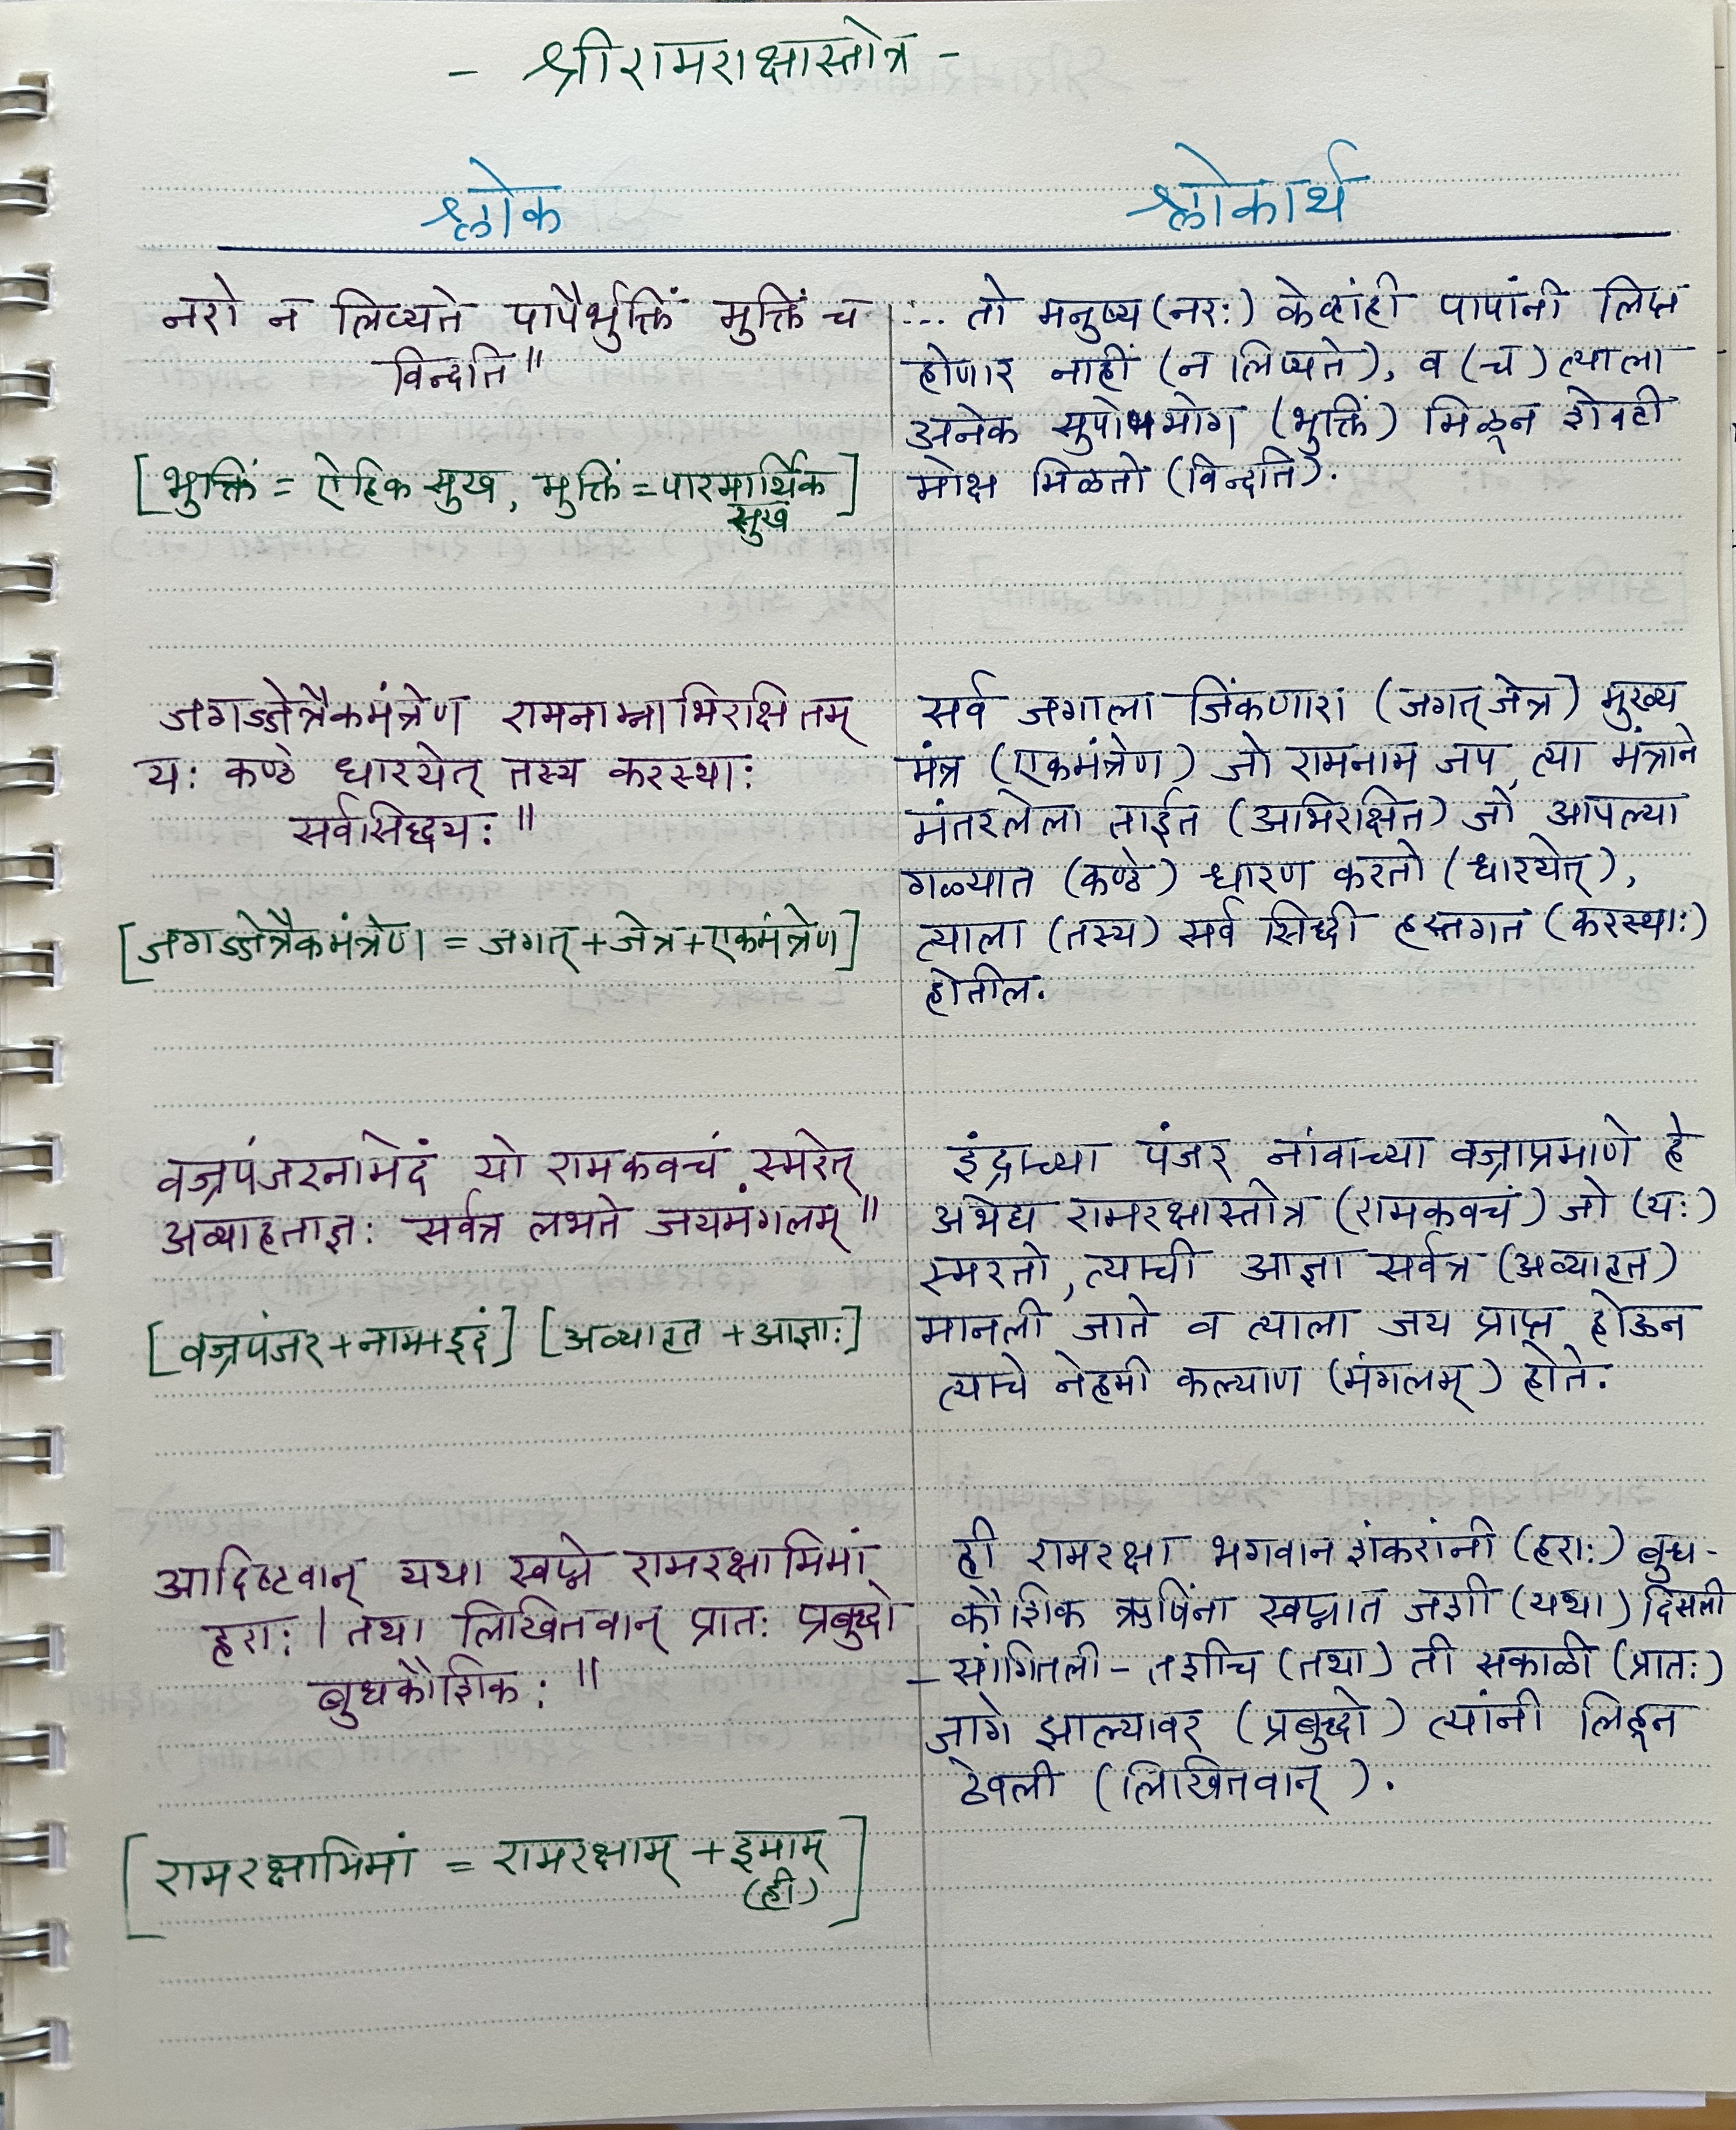 - श्रीरामराक्षास्तोत्र -
श्लोक
श्लोकार्थ
नरो न लिप्यते पापैर्भुक्तिं मुक्तिं च
विन्दति॥
[भुक्तिं = ऐहिक सुख, मुक्तिं = पारमार्थिक]
सुख
... तो मनुष्य (नरः) केव्हांही पापांनी लिप्त
होणार नाही (न लिप्यते), व (च) त्याला
अनेक सुपोभोग (भुक्तिं) मिळून शेवटी
मोक्ष मिळतो (विन्दति).
जगज्जेत्रैकमंत्रेण रामनाम्नाभिरक्षितम्
यः कण्ठे धारयेत् तस्य करस्थाः
सर्वसिद्धयः॥
[जगज्जेत्रैकमंत्रेण = जगत् + जेत्र + एकमंत्रेण]
सर्व जगाला जिंकणारा (जगत् जेत्र) मुख्य
मंत्र (एकमंत्रेण) जो रामनाम जप, त्या मंत्राने
मंतरलेला ताईत (अभिरक्षित) जो आपल्या
गळ्यात (कण्ठे) धारण करतो (धारयेत्),
त्याला (तस्य) सर्व सिद्धी हस्तगत (करस्थाः)
होतील.
वज्रपंजरनामेदं यो रामकवचं स्मरेत्
अव्याहताज्ञः सर्वत्र लभते जयमंगलम्॥
[वज्रपंजर + नाम + इदं] [अव्याहत + आज्ञाः]
इंद्राच्या पंजर नांवाच्या वज्राप्रमाणे हे
अभेद्य रामरक्षास्तोत्र (रामकवचं) जो (यः)
स्मरतो, त्याची आज्ञा सर्वत्र (अव्याहत)
मानली जाते व त्याला जय प्राप्त होऊन
त्याचे नेहमी कल्याण (मंगलम्) होते.
आदिष्टवान् यथा स्वप्ने रामरक्षामिमां
हराः। तथा लिखितवान् प्रातः प्रबुद्धो
बुधकौशिकः॥
[रामरक्षामिमां = रामरक्षाम् + इमाम्]
(ही)
ही रामरक्षा भगवान शंकरांनी (हराः) बुध-
कौशिक ऋषिंना स्वप्नात जशी (यथा) दिसली
- सांगितली - तशीच (तथा) ती सकाळी (प्रातः)
जागे झाल्यावर (प्रबुद्धो) त्यांनी लिहून
ठेवली (लिखितवान्).